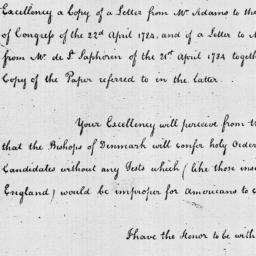 Excellency a Copy of a Letter from Mr Adams to the
of Congress of the 22d April 1784, and of a Letter to M
from Mr de St Saphorin of the 21st April 1784 togeth
Copy of the Paper referred to in the latter.
Your Excellency will perceive from th
that the Bishops of Denmark will confer holy Order
Candidates without any Tests which (like those ins
England) would be improper for Americans to c
I have the Honor to be with